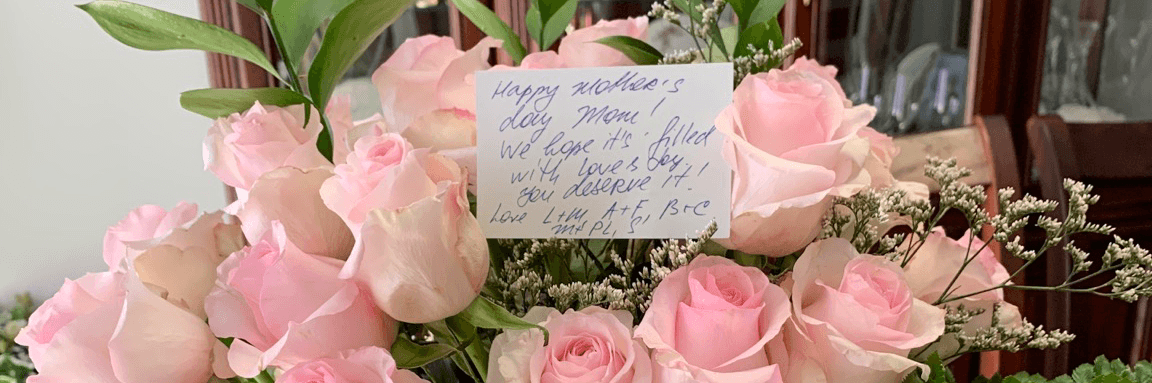 Happy Mother's
day Mom!
We hope it's filled
with love & joy.
you deserve it!
Love L+M, A+F, B+C
M+PL, S,